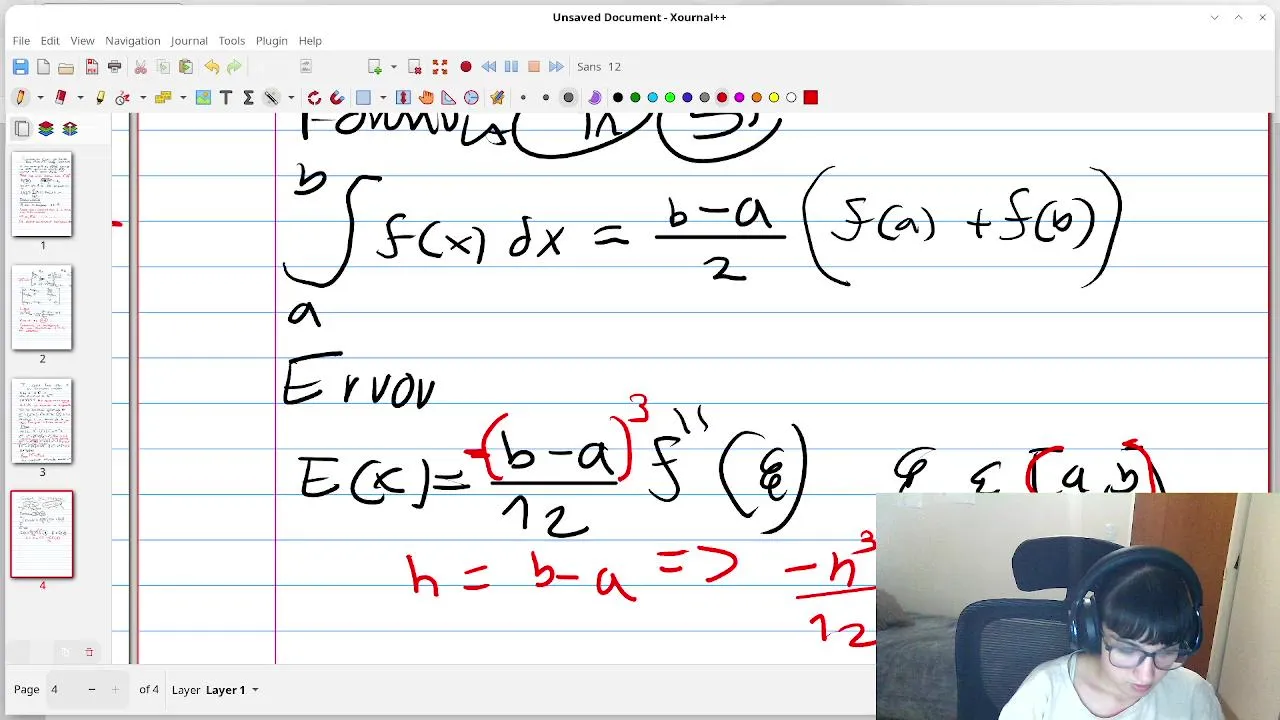 Unsaved Document - Xournal++
File Edit View Navigation Journal Tools Plugin Help
Sans 12
1
2
3
4
b
∫ f(x) dx = b-a / 2 (f(a) + f(b))
a
Error
E(x) = -(b-a)³ / 12 f''(ξ) ξ ε [a,b]
h = b-a => -h³ / 12
Page 4 of 4 Layer Layer 1